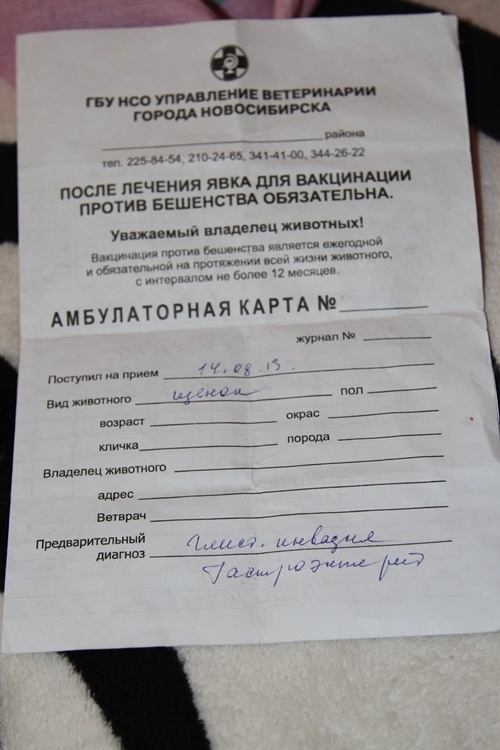 ГБУ НСО УПРАВЛЕНИЕ ВЕТЕРИНАРИИ
ГОРОДА НОВОСИБИРСКА
района
тел. 225-84-54, 210-24-65, 341-41-00, 344-26-22
ПОСЛЕ ЛЕЧЕНИЯ ЯВКА ДЛЯ ВАКЦИНАЦИИ
ПРОТИВ БЕШЕНСТВА ОБЯЗАТЕЛЬНА.
Уважаемый владелец животных!
Вакцинация против бешенства является ежегодной
и обязательной на протяжении всей жизни животного,
с интервалом не более 12 месяцев.
АМБУЛАТОРНАЯ КАРТА №
журнал №
Поступил на прием 14.08.13.
Вид животного щенок пол
возраст окрас
кличка порода
Владелец животного
адрес
Ветврач
Предварительный
диагноз глист. инвазия
Гастроэнтерит